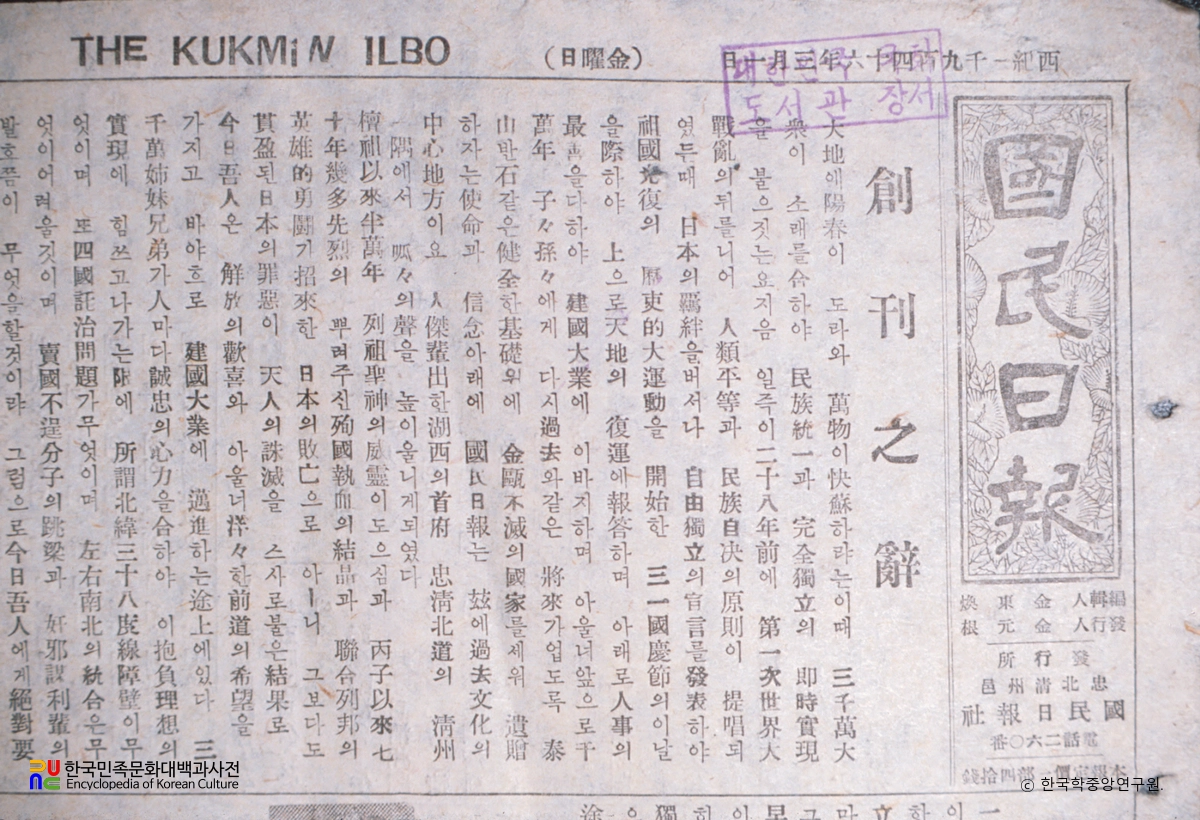 THE KUKMIN ILBO
西紀一千九百四十六年三月一日
(金曜日)
도서과 장서
國民日報
編輯人 金東煥
發行人 金元根
發行所
忠北清州邑
國民日報社
電話二六〇番
本報定價一部四拾錢
創刊之辭
大地에陽春이 도라와 萬物이快蘇하랴는이때 三千萬大
衆이 소래를合하야 民族統一과 完全獨立의 卽時實現
을 불으짓는요지음 일즉이二十八年前에 第一次世界大
戰亂의뒤를니어 人類平等과 民族自决의原則이 提唱되
였든때 日本의羈絆을버서나 自由獨立의宣言를發表하야
祖國光復의 歷史的大運動을 開始한 三一國慶節의이날
을際하야 上으로天地의 復運에報答하며 아래로人事의
最善을다하야 建國大業에 이바지하며 아울너앞으로千
萬年 子々孫々에게 다시過去와같은 將來가업도록 泰
山반石갈은健全한基礎우에 金甌不滅의國家를세워 遺贈
하자는使命과 信念아래에 國民日報는 玆에過去文化의
中心地方이요 人傑輩出한湖西의首府 忠淸北道의 淸州
一隅에서 呱々의聲을 높이울니게되였다
檀祖以來半萬年 列祖聖神의威靈이도으심과 丙子以來七
十年幾多先烈의 뿌려주신殉國執血의結晶과 聯合列邦의
英雄的勇鬪가招來한 日本의敗亡으로 아ー니 그보다도
貫盈된日本의罪惡이 天人의誅滅을 스사로불은結果로
今日吾人은 解放의歡喜와 아울너洋々한前道의希望을
가지고 바야흐로 建國大業에 邁進하는途上에있다 三
千萬姉妹兄弟가人마다誠忠의心力을合하야 이抱負理想의
實現에 힘쓰고나가는限에 所謂北緯三十八度線障壁이무
엇이며 또四國託治問題가무엇이며 左右南北의統合은무
엇이어려울것이며 賣國不逞分子의跳梁과 奸邪謀利輩의
발호쯤이 무엇을할것이랴 그럼으로今日吾人에게絕對要
한국민족문화대백과사전
Encyclopedia of Korean Culture
© 한국학중앙연구원.